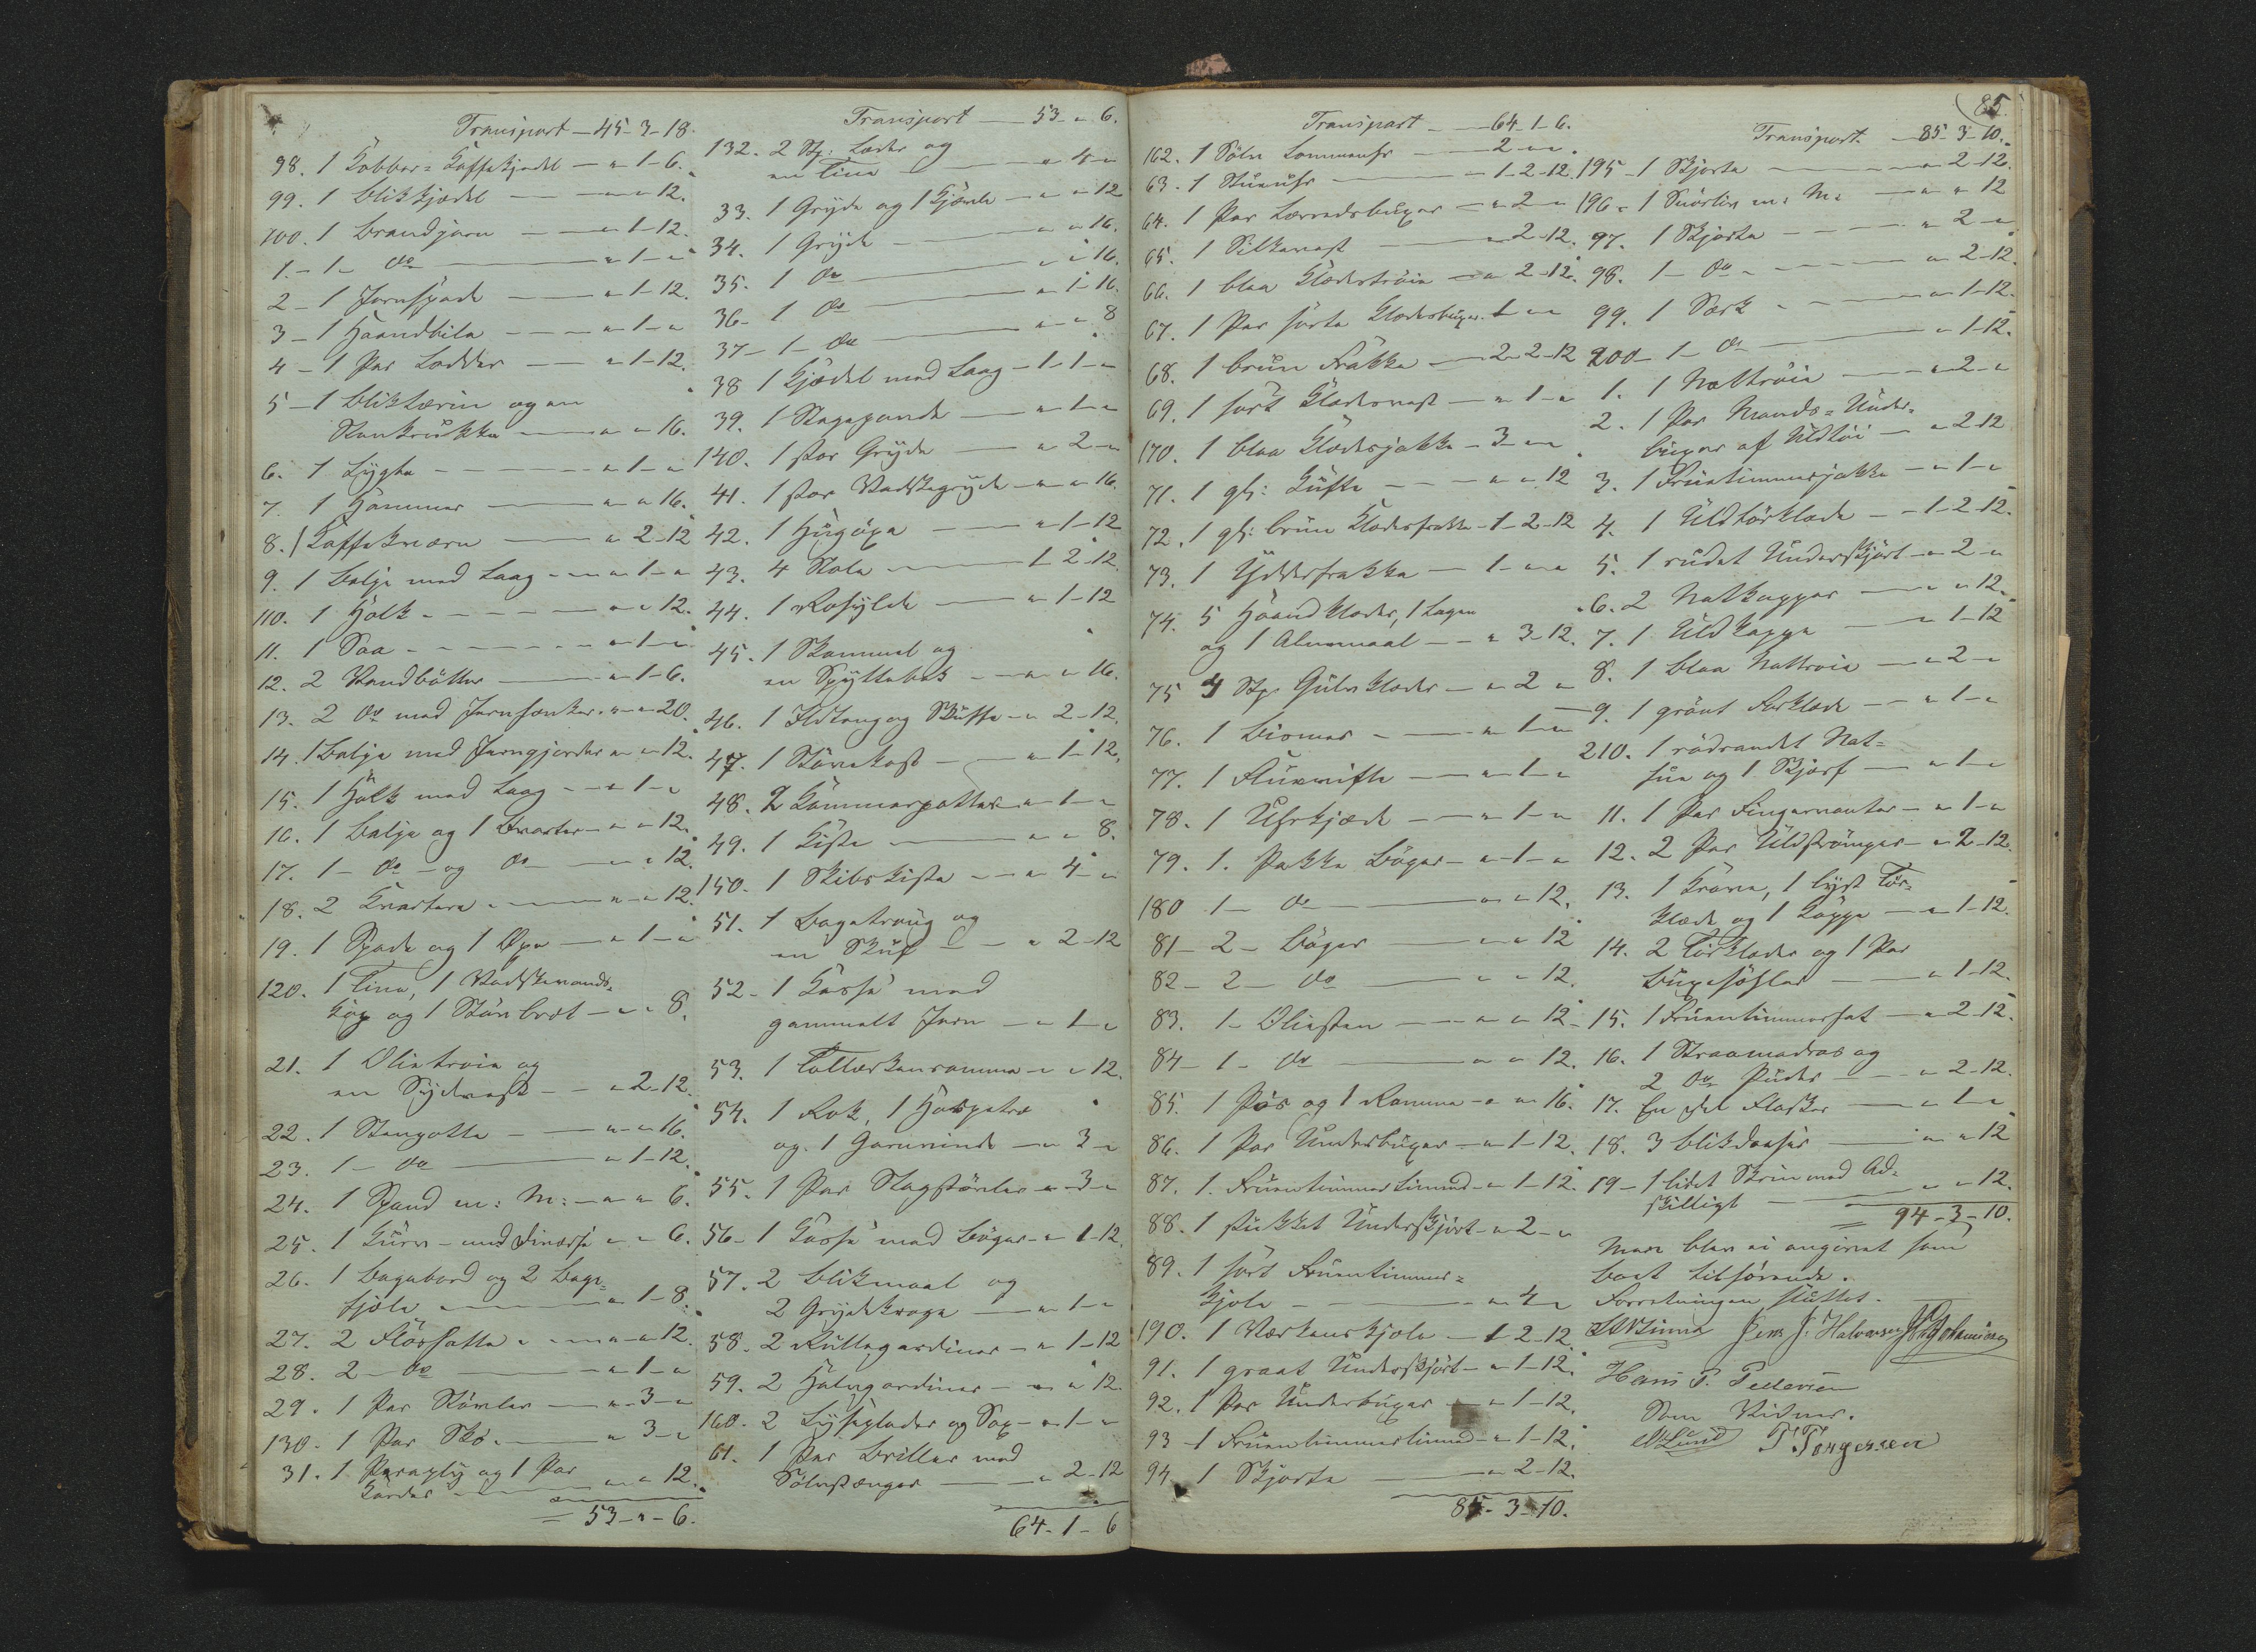 Transport — 45-3-18.
98. 1 Kobber=Kaffekjedel — „ 1-6.
99. 1 Blikkjedel — „ „ 12.
100. 1 Brandjern — „ 1-12.
1. 1 do — „ 1 „
2 - 1 Jernspade — „ 1-12.
3 - 1 Haandbile — „ 1 „
4 - 1 Par Lodder — „ 1-12.
5 - 1 Bliktærin og en
Stenkrukke — „ „ 16.
6. 1 Lygte — „ 1 „
7. 1 Hammer — „ „ 16.
8. 1 Kaffekværn — „ 2-12
9. 1 Balje med Laag — „ 1 „
110. 1 Holk — „ „ 12.
11. 1 Saa — „ 1 „
12. 2 Vandbøtter — „ 1-6.
13. 2 do med Jernhanker „ „ 20.
14. 1 Balje med Jerngjorder „ „ 12.
15. 1 Holk med Laag — „ 1 „
16. 1 Balje og 1 Kvarter — „ „ 12.
17. 1 - do - og do — „ „ 12.
18. 2 Kvartere — „ „ 12.
19. 1 Spade og 1 Øxe — „ 1 „
120. 1 Tine, 1 Vadskevands-
kop og 1 — „ „ 8.
21. 1 Olietrøie og
en Sydvest — „ 2-12.
22. 1 Stengotte — „ „ 16.
23. 1 - do — „ 1-12.
24. 1 Spand m: M: — „ „ 6.
25. 1 Kurv - med Diverse „ „ 6.
26. 1 Bagebord og 2 Bage-
fjøle — „ 1-8.
27. 2 — „ „ 12.
28. 2 - do — „ 1 „
29. 1 Par Støvler — „ 3 „
130. 1 Par Sko — „ 3 „
31. 1 Paraply og 1 Par
Karder — „ „ 12.
= 53 „ 6.
Transport — 53 „ 6.
132. 2 Stp: Læder og
en Tine — „ 4 „
33. 1 Gryde og 1 Kjørel — „ „ 12
34. 1 Gryde — „ „ 16.
35. 1 do — „ „ 16.
36 - 1 do — „ 1-16.
37 - 1 - do — „ „ 8
38 1 Kjedel med Laag — 1-1 „
39. 1 Stegepande — „ 1 „
140. 1 stor Gryde — „ 2 „
41. 1 stor Vadskegryde — „ „ 16.
42. 1 Hugøxe — „ 1-12
43. 4 Stole — 1-2-12.
44. 1 — „ 1-12
45. 1 Skammel og
en Spyttebak — „ „ 16.
46. 1 Ildtang og Skuffe — „ 2-12.
47. 1 Støvekost — „ 1-12.
48. 2 Kammerpotter — „ 1 „
49. 1 Kiste — „ „ 8.
150. 1 Skibskiste — „ 4 „
51. 1 Bagetraug og
en — „ 2-12
52 - 1 Kasse med
gammelt Jern — „ 1 „
53. 1 Tallerkenramme — „ „ 12.
54. 1 Rok, 1 Haspetræ
og 1 Garnvinde — „ 3 „
55. 1 Par Stagstøvler — „ 3 „
56 - 1 Kasse med Bøger — „ 1-12.
57. 2 Blikmaal og
2 Grydekroge — „ 1 „
58. 2 Rullegardiner — „ 1-12
59. 2 Halvgardiner — „ „ 12.
160. 2 Lyseplader og Sax — „ 1 „
61. 1 Par Briller med
Sølvstænger — „ 2-12
64-1-6
Transport — 64-1-6.
162. 1 Sølv Lommeuhr — 2 „ „
63. 1 Stueuhr — 1-2-12.
64. 1 Par Lærredsbuxer — „ 2 „
65. 1 Silkevest — „ 2-12.
66. 1 blaa Klædestrøie — „ 2-12.
67. 1 Par sorte Klædesbuxer 1 „ „
68. 1 brun Frakke — 2-2-12
69. 1 sort Klædesvest — „ 1 „
170. 1 blaa Klædesjakke — 3 „ „
71. 1 gl: Kufte — „ „ 12
72. 1 gl: brun Klædesfrakke — 1-2-12
73. 1 Yderfrakke — 1 „ „
74. 5 Haandklæder, 1 Lagen
og 1 Alenmaal — „ 3-12.
75 4 Stp: Gulvklæder — „ 2 „
76. 1 Bismer — „ 1 „
77. 1 Fluevifte — „ 1 „
78. 1 Uhrkjæde — „ 1 „
79. 1. Pakke Bøger — „ 1 „
180 1 - do — „ „ 12.
81 - 2 - Bøger — „ „ 12
82 - 2 - do — „ „ 12.
83. 1 - Oliesten — „ „ 12.
84 - 1 - do — „ „ 12.
85. 1 Pøs og 1 Ramme — „ „ 16.
86. 1 Par Underbuxer — „ 1-12.
87. 1. Fruentimmerlinned — „ 1-12.
88. 1 stukket Underskjørt — „ 2 „
89. 1 sort Fruentimmer=
kjole — „ 4 „
190. 1 Værkenskjole — 1 2-12.
91. 1 graat Underskjørt — „ 1-12.
92. 1 Par Underbuxer — „ 1-12.
93 - 1 Fruentimmerlinned — „ 1-12.
94. 1 Skjorte — „ 2-12.
85-3-10.
85.
Transport — 85-3-10.
195 - 1 Skjorte — „ 2-12.
196 - 1 Snørliv m: M: — „ „ 12
97. 1 Skjorte — „ 2 „
98. 1 - do — „ 2-12.
99. 1 Særk — „ 1-12.
200 - 1 - do — „ 1-12.
1. 1 Nattrøie — „ 2 „
2. 1 Par Mands=Under-
buxer af Uldtøi — „ 2-12
3. 1 Fruentimmerjakke — „ 1 „
4. 1 Uldtørklæde — 1-2-12.
5. 1 rudet Underskjørt — „ 2 „
6. 2 Natkapper — „ „ 12.
7. 1 Uldkappe — „ 1-12
8. 1 blaa Nattrøie — „ 2 „
9. 1 grønt Forklæde — „ 1 „
210. 1 rødrandet Nat=
hue og 1 Skjærf — „ 1 „
11. 1 Par Fingervanter — „ 1 „
12. 2 Par Uldstrømper — „ 2-12.
13. 1 Krave, 1 lyst Tør-
klæde og 1 Kappe — „ 1-12.
14. 2 Tørklæder og 1 Par
Buxeseler — „ 1-12.
15. 1 Fruentimmerhat — „ 2-12.
16. 1 Straamadras og
2 do Puder — „ 2-12.
17. En Del Flasker — „ 1 „
18. 3 Blikdaaser — „ „ 12
19 - 1 lidet Skrin med Ad-
skilligt — „ „ 12.
= 94-3-10.
Mere blev ei angivet som
Boet tilhørende.
Forretningen sluttet.
Jens J. Halvorsen
Hans P. Pedersen
Som Vidner.
Lund T Torgersen